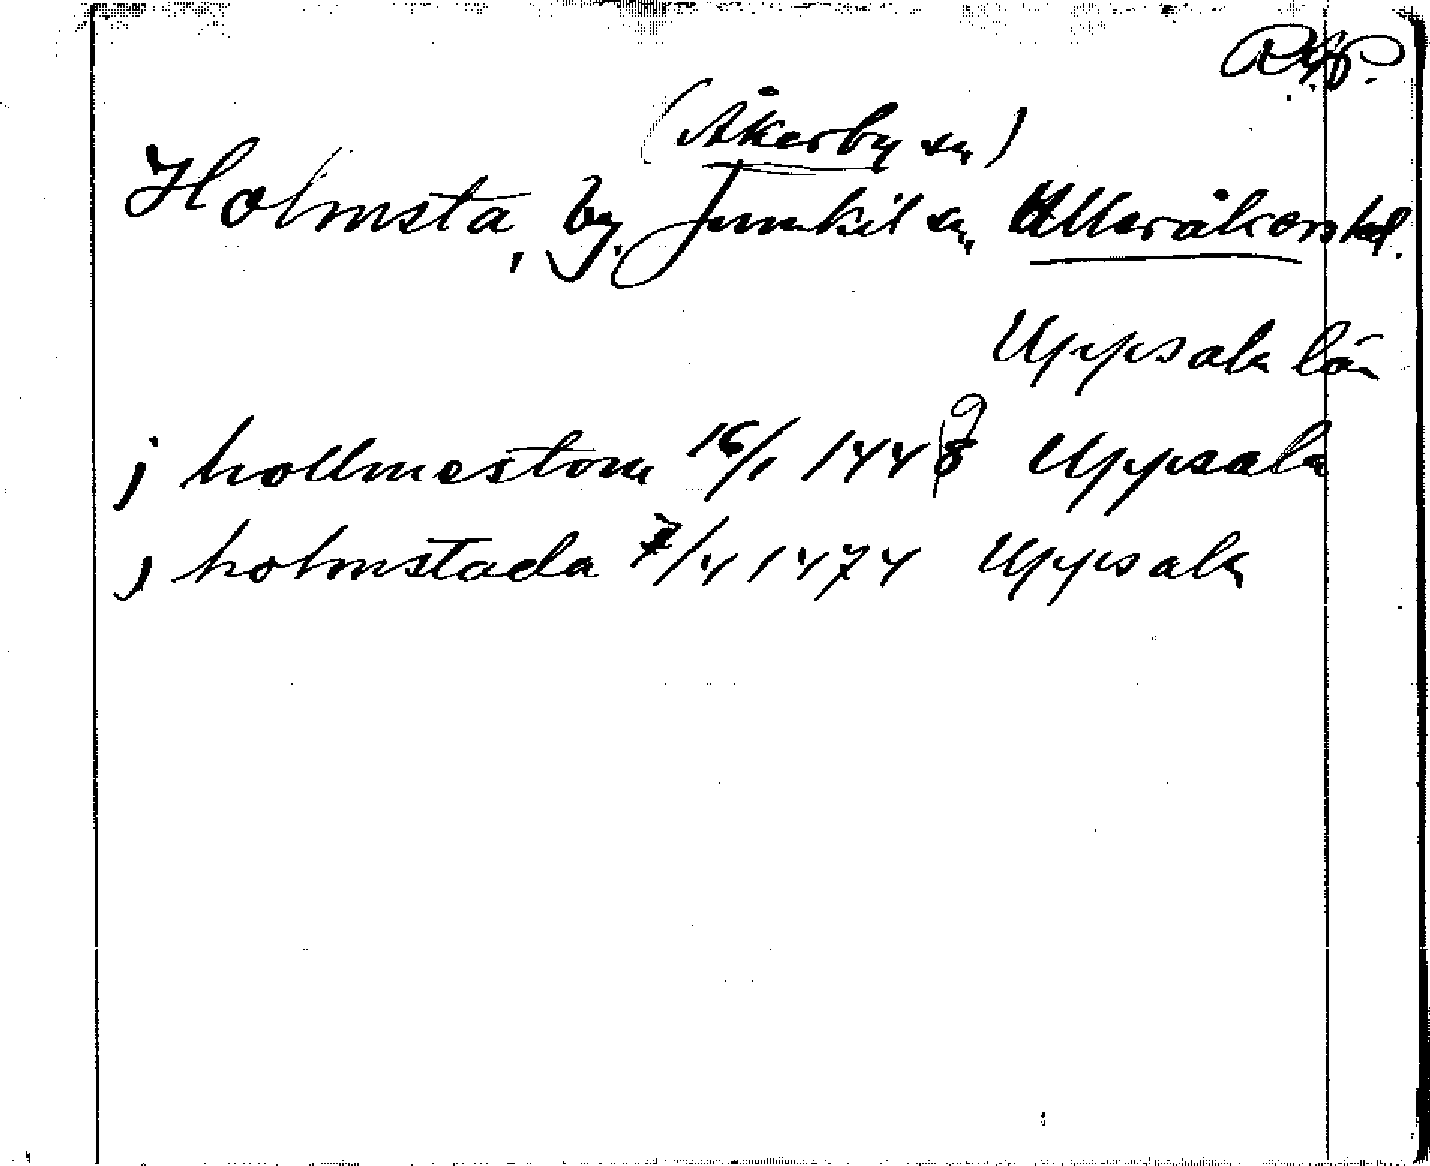 RAP.
(Åkerby sn)
Holmsta, by, Jumkil sn, Ulleråkers hd.
Uppsala län
j hollmestom 16/1 1448 Uppsala
j holmstada 7/4 1474 Uppsala